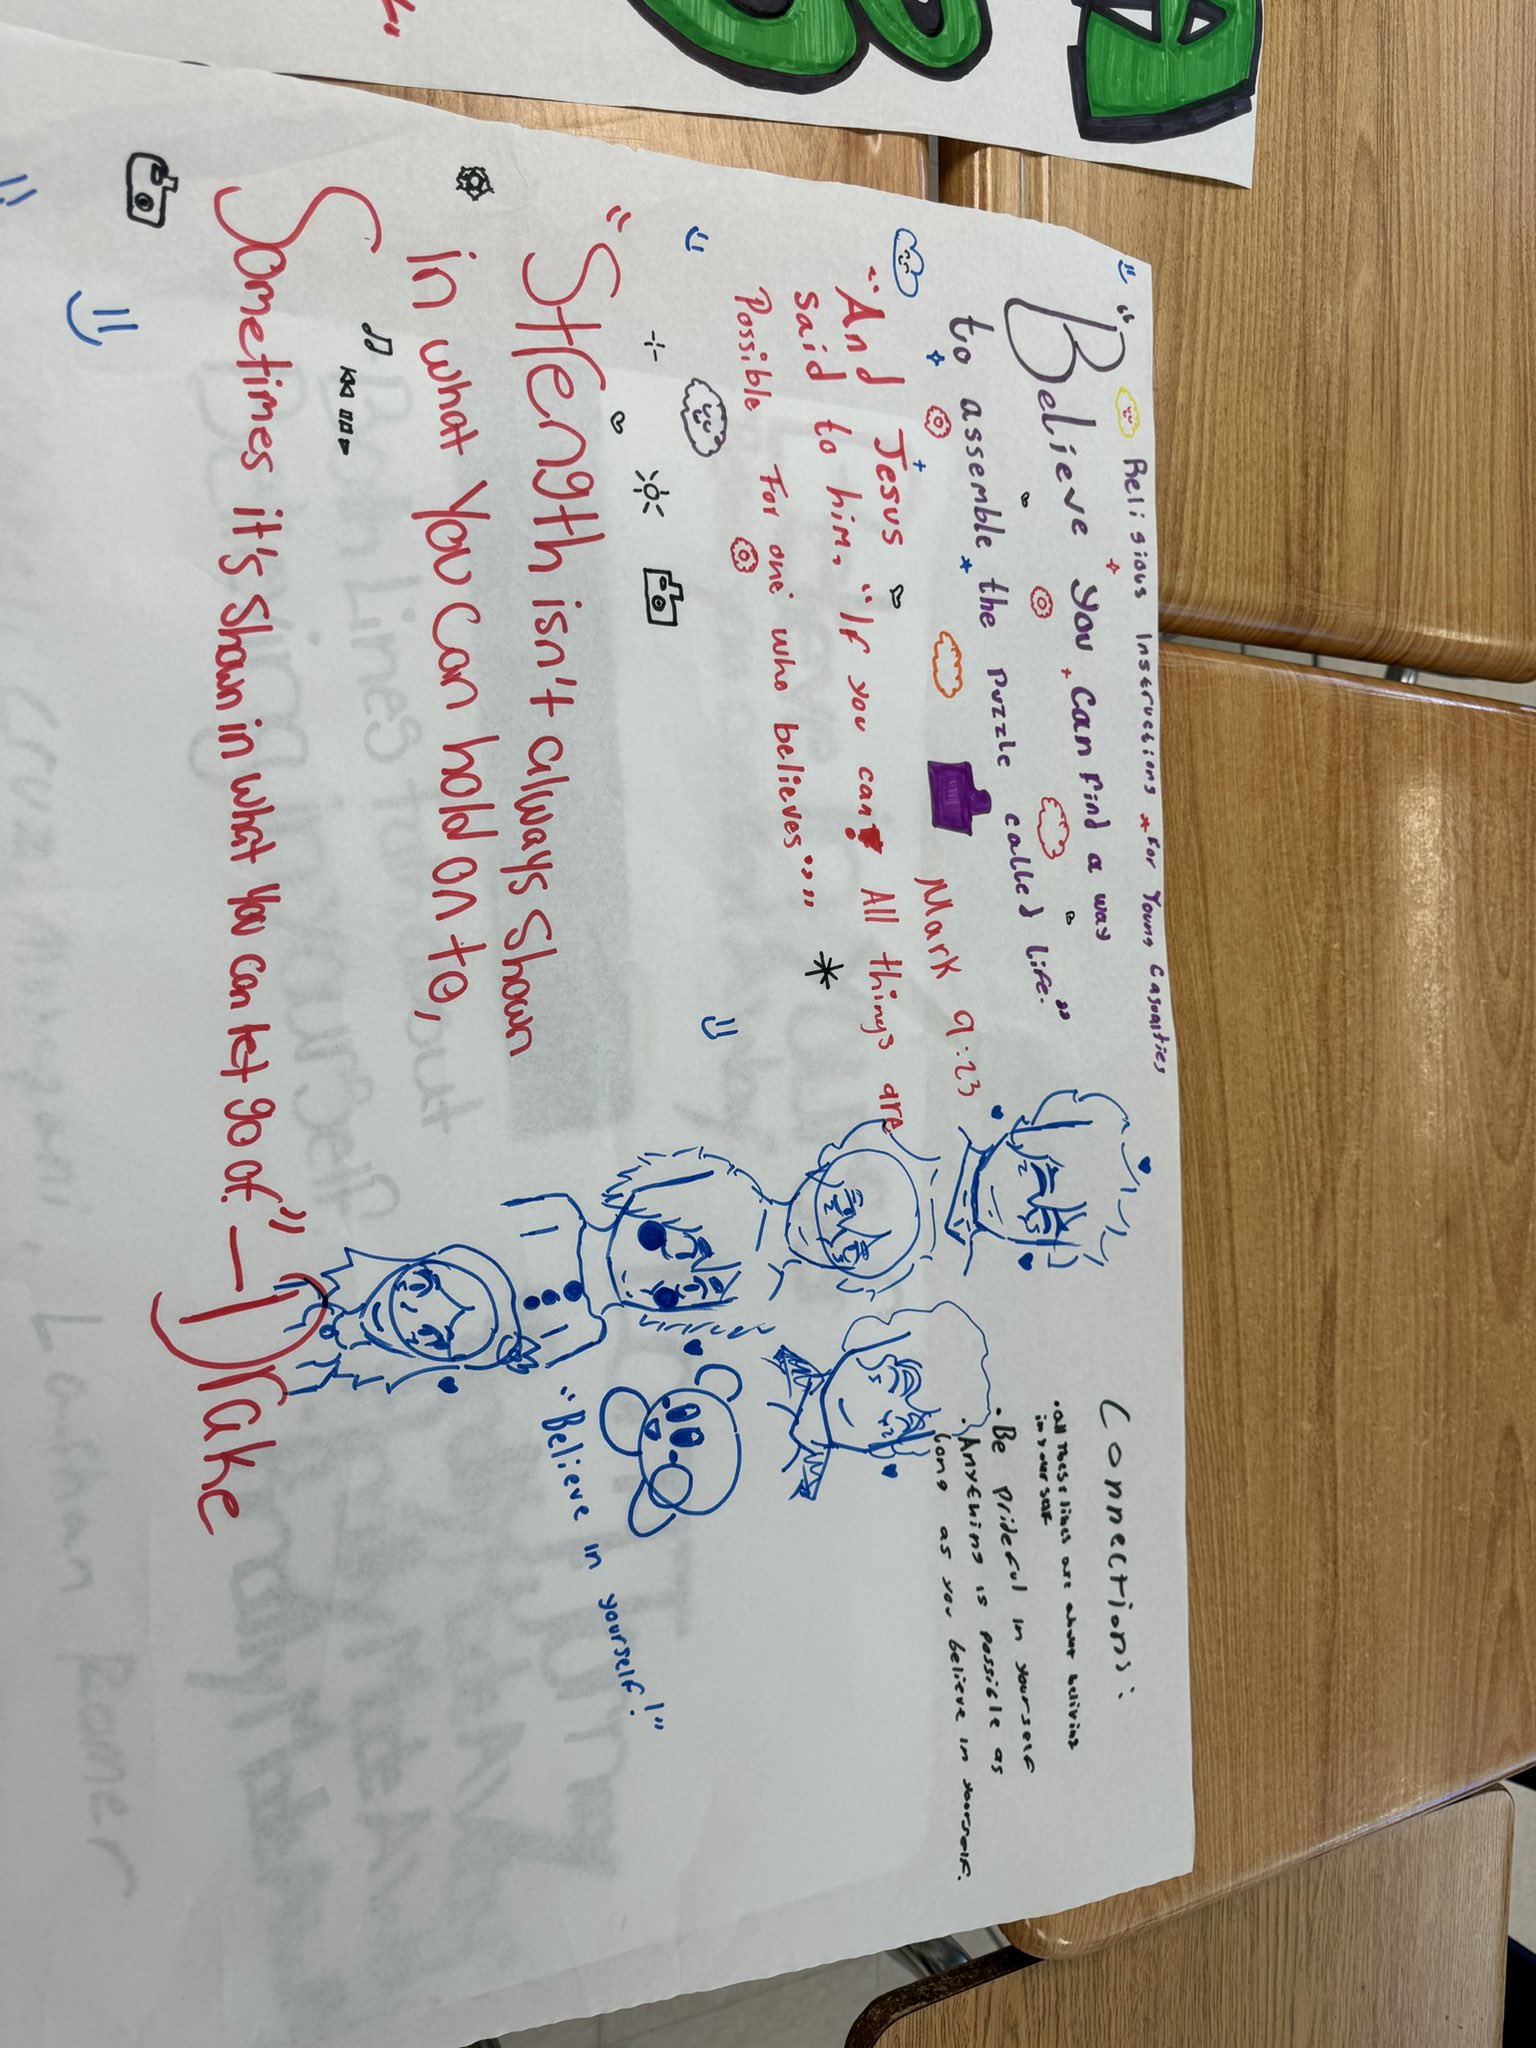 Religious Instructions * for Young Casualties
"Believe you can find a way
to assemble the puzzle called life."
Mark 9:23
"And Jesus said to him, "If you can! All things are
Possible For one who believes"""
"Strength isn't always shown
in what you can hold on to,
Sometimes it's shown in what you can let go of." — Drake
Connections:
• all these lines are about beliving
in your self
• Be prideful in yourself
• Anything is possible as
long as you believe in yourself.
"Believe in yourself!"